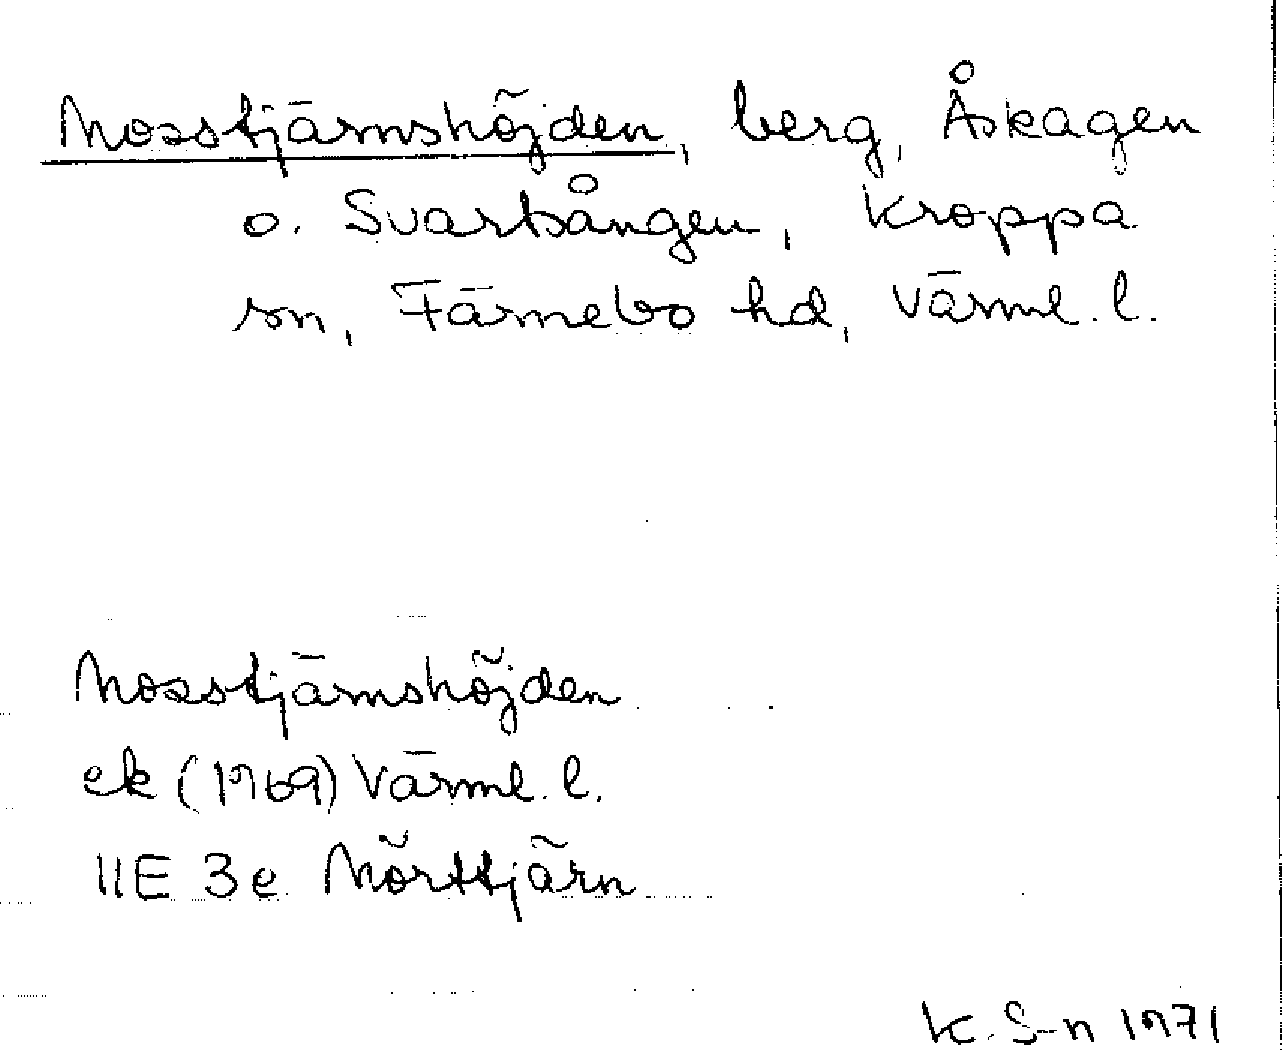 Mosstjärnshöjden, berg, Åskagen
o. Svartsången, Kroppa
sn, Färnebo hd, Värml. l.
Mosstjärnshöjden
ek (1969) Värml. l.
11E 3e Mörttjärn
K. S-n 1971